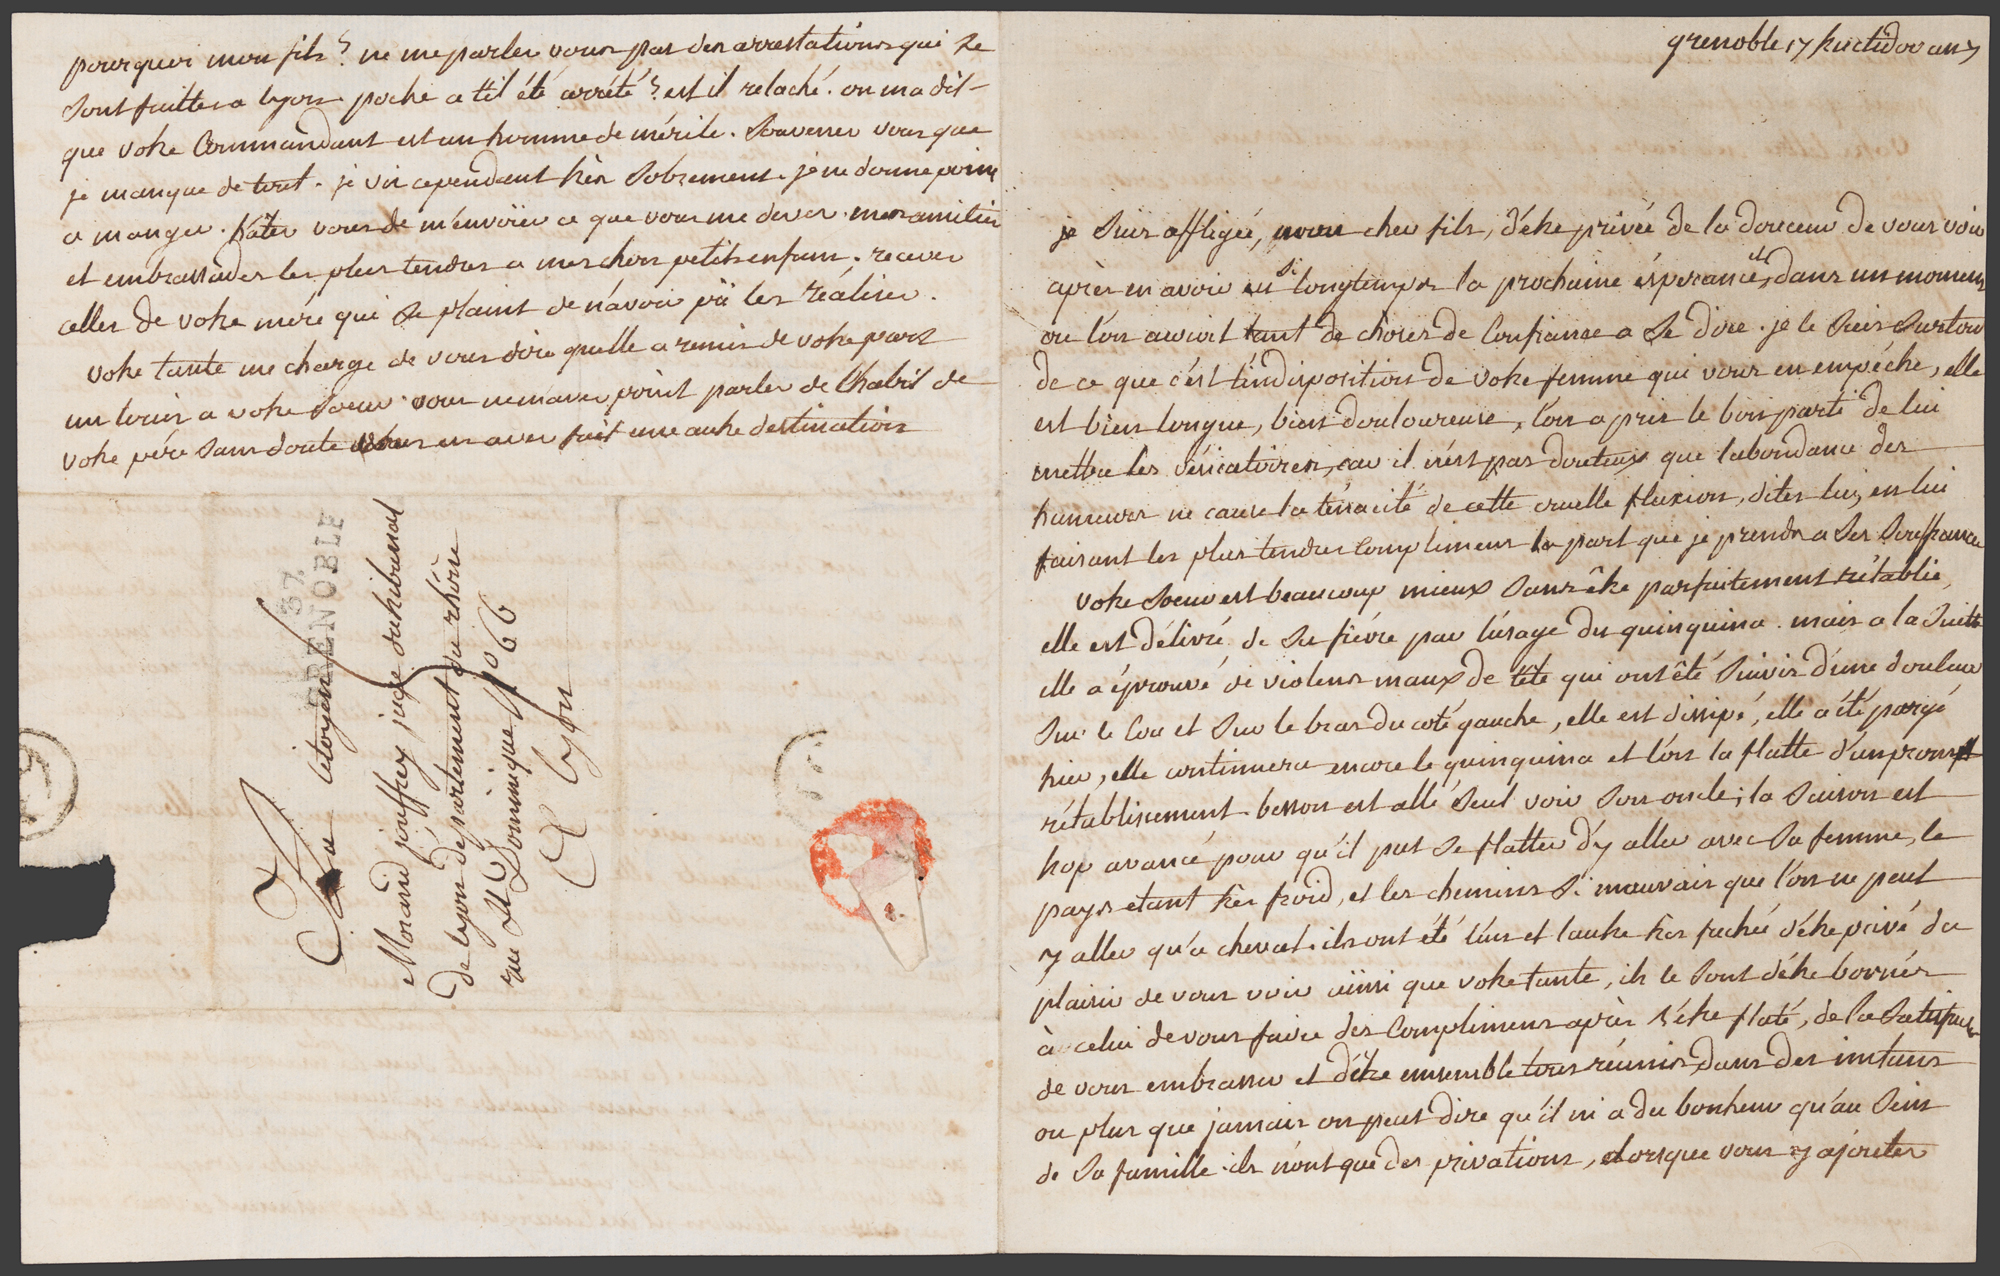 grenoble 17 fructidor an 7
je suis affligée, mon cher fils, d'être privée de la douceur de vous voir
après en avoir eu si longtemps la prochaine ésperance, et dans un moment
ou l'on auroit tant de choses de Confiance a se dire. je le suis surtout
de ce que c'est l'indisposition de votre femme qui vous en empéche, elle
est bien longue, bien douloureuse, l'on a pris le bon parti de lui
mettre les vésicatoires, car il n'est pas douteux que l'abondance des
humeurs ne cause la ténacité de cette cruelle fluxion, dites lui, en lui
faisant les plus tendres Complimens la part que je prends a ses souffrances
votre soeur est beaucoup mieux sans être parfaitement rétablie,
elle est délivré de sa fiévre par l'usage du quinquina. mais a la suitte
elle a éprouvé de violens maux de tête qui ont été suivis d'une douleur
sur le Cou et sur le bras du coté gauche, elle est dissipé, elle a été purgé
hier, elle continuera encore le quinquina et l'on la flatte d'un prompt
rétablissement. besson est allé seul voir son oncle; la saison est
trop avancé pour qu'il put se flatter d'y aller avec sa femme, le
pays etant très froid, et les chemins si mauvais que l'on ne peut
y aller qu'a cheval. ils ont été l'un et l'autre très fachés d'étre privé du
plaisir de vous voir ainsi que votre tante, ils le sont d'étre bornés
à celui de vous faire des Complimens après s'étre flaté, de la satisfaction
de vous embrasser et d'étre ensemble tous réunis, dans des instans
ou plus que jamais on peut dire qu'il ni a du bonheur qu'au sein
de sa famille. ils n'ont que des privations, et lorsque vous y ajouter
pourquoi mon fils? ne me parler vous pas des arrestations qui se
sont faittes a lyon. poche a til été arrété? est il relaché. on m'a dit
que votre Commandant est un homme de mérite. Souvener vous que
je manque de tout. je vis cependant très sobrement. je ne donne point
a manger. hâter vous de m'énvoïer ce que vous me dever. mes amitiés
et embrassades les plus tendres a mes chers petits enfans. recever
celles de votre mére qui se plaint de n'avoir pû les réaliser.
votre tante me charge de vous dire qu'elle a remis de votre part
un louis a votre soeur. vous ne m'aver point parler de l'habit de
votre pére sans doute vous en aver fait une autre destination
37
GRENOBLE
Au citoyen
Morand jouffrey juge du tribunal
de lyon departement du rhône
rue St Dominique No 66
A Lyon